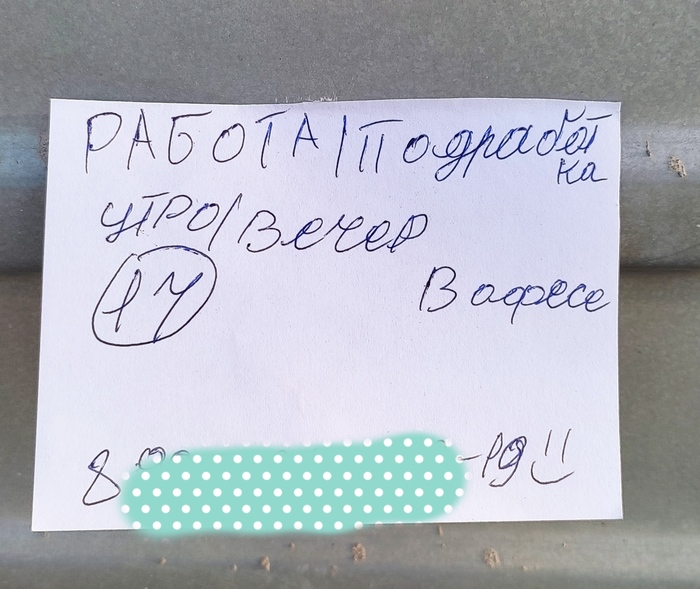 РАБОТА/Подработ
ка
УТРО/Вечер
17
В офисе
8 -19